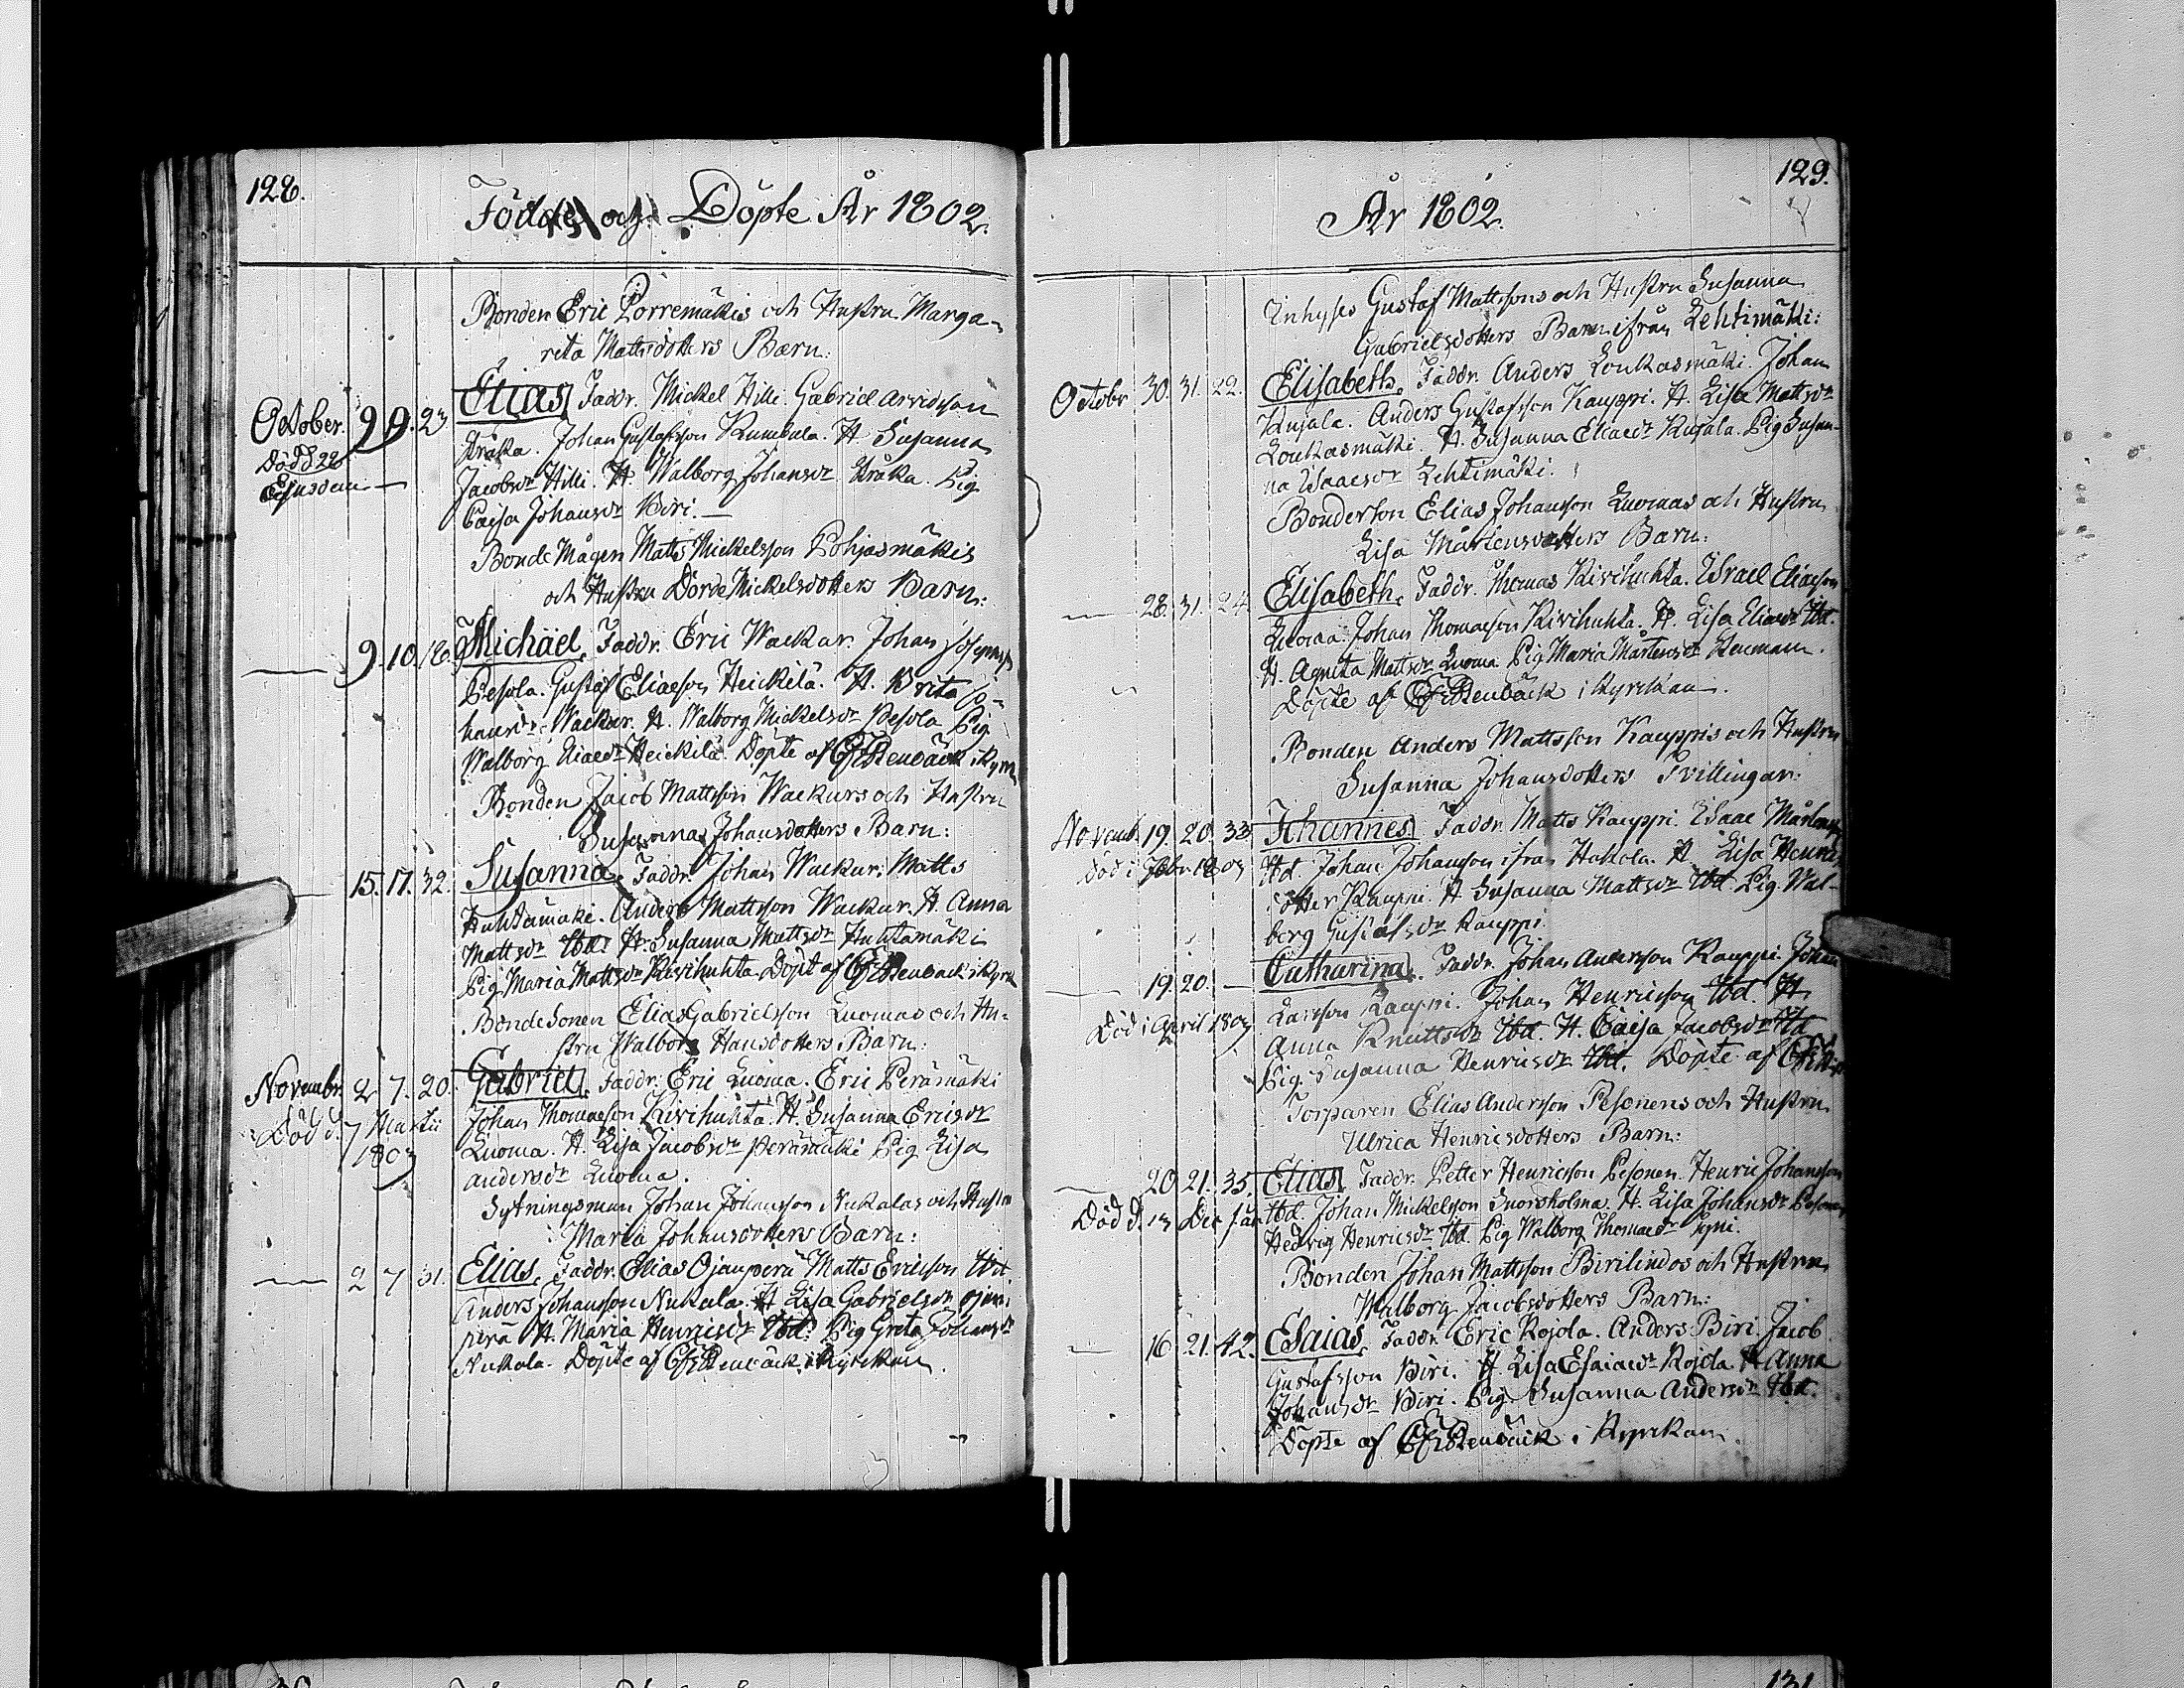 128.
Födde och Döpte År 1802.
Bonden Eric Porremäkis och Hustru Marga-
reta Mattsdotters Barn:
October. 9. 9. 23. Elias, Faddr. Mickel Hilli. Gabriel Arvidsson
Död d 28 Kråka. Johan Gustafsson Kumbula. H. Susanna
Ejusdem — Jacobsdr Hilli. H. Walborg Johansdr Kråka. Pig.
Caisa Johansdr Biri. —
Bonde Mågen Matts Mickelsson Pohjasmäkis
och Hustru Dorde Mickelsdotters Barn:
— 9. 10. 18. Michäel, Faddr. Eric Wackar. Johan
Pesola. Gustaf Eliaeson Heickilä. H. Brita Jo-
hansdr Wackur. H. Walborg Mickelsdr Pesola Pig
Walborg Eliaedr Heickilä. Döpte af
Bonden Jacob Mattsson Wackurs och Hustru
Susannas Johansdotters Barn:
— 15. 17. 32. Susanna, Faddr. Johan Wackur. Matts
Huhtamäki. Anders Mattsson Wackur. H. Anna
Mattsdr Ibd. H. Susanna Mattsdr Huhtamäki
Pig Maria Mattsdr Kivihuhta. Döpt af
Bondesonen Elias Gabrielsson Luomas och Hu-
stru Walborg Hansdotters Barn:
Novembr. 2 7. 20. Gabriel, Faddr. Eric Luoma. Eric Perämäki
Död d. 7 Martii Johan Thomaeson Kivihuhta. H. Susanna Ericsdr
1803 Luoma. H. Lisa Jacobsdr Perämäki Pig Lisa
Andersdr Luoma.
Sytningsman Johan Johansson Nukalas och Hustru
Maria Johansdotters Barn:
— 2 7 31. Elias, Faddr. Elias Ojanperä Matts Ericsson Ibd.
Anders Johansson Nukala. H Lisa Gabrielsdr Ojan-
perä H. Maria Henricsdr Ibd. Pig Greta Johansdr
Nukala. Döpte af i Kyrckan.
129.
År 1802.
Inhyses Gustaf Mattssons och Hustru Susanna
Gabrielsdotters Barn ifrån Lehtimäki:
Octobr 30. 31. 22. Elisabeth, Faddr. Anders Loukasmäki. Johan
Kujala. Anders Gustafsson Kauppi. H. Lisa Mattsdr
Loukasmäki. H. Susanna Eliaedr Kujala. Pig Susan-
na Isaacsdr Lehtimäki.
Bondeson Elias Johansson Luomas och Hustru
Lisa Mårtensdotters Barn:
— 28. 31. 24 Elisabeth, Faddr. Thomas Kivihuhta. Israel Eliaeson
Luoma. Johan Thomaeson Kivihuhta. H. Lisa Eliaedr Ibd.
H. Agneta Mattsdr Luoma. Pig Maria Mårtensdr
Döpte af i Kyrckan.
Bonden Anders Mattsson Kauppis och Hustru
Susanna Johansdotters Tvillingar:
Novemb. 19. 20. 33 Johannes, Faddr. Matts Kauppi. Isaac
död i Febr. 1803 Ibd. Johan Johansson ifrån Hakola. H. Lisa Henrics-
dotter Kauppi. H Susanna Mattsdr Ibd. Pig Wal-
borg Gustafsdr Kauppi.
— 19. 20. — Catharina, Faddr. Johan Andersson Kauppi. Johan
Död i April 1803 Larsson Kauppi. Johan Henricsson Ibd. H.
Anna Knutsdr Ibd. H. Caisa Jacobsdr Ibd
Pig. Susanna Henricsdr Ibd. Döpte af
Torparen Elias Andersson Pesonens och Hustru
Ulrica Henricsdotters Barn:
— 20 21. 35. Elias, Faddr. Petter Henricsson Pesonen. Henric Johansson
Död d. 13 Dec. s. år Ibd. Johan Mickelsson Snorsholma. H. Lisa Johansdr Pesonen
Hedvig Henricsdr Ibd. Pig Walborg Thomaedr
Bonden Johan Mattsson Birilindos och Hustru
Walborg Jacobsdotters Barn:
— 16. 21. 42. Esaias, Faddr. Eric Rojola. Anders Biri. Jacob
Gustafsson Biri. H. Lisa Esaiaedr Rojola. H Anna
Johansdr Biri. Pig. Susanna Andersdr Ibd.
Döpte af i Kyrckan.
131.